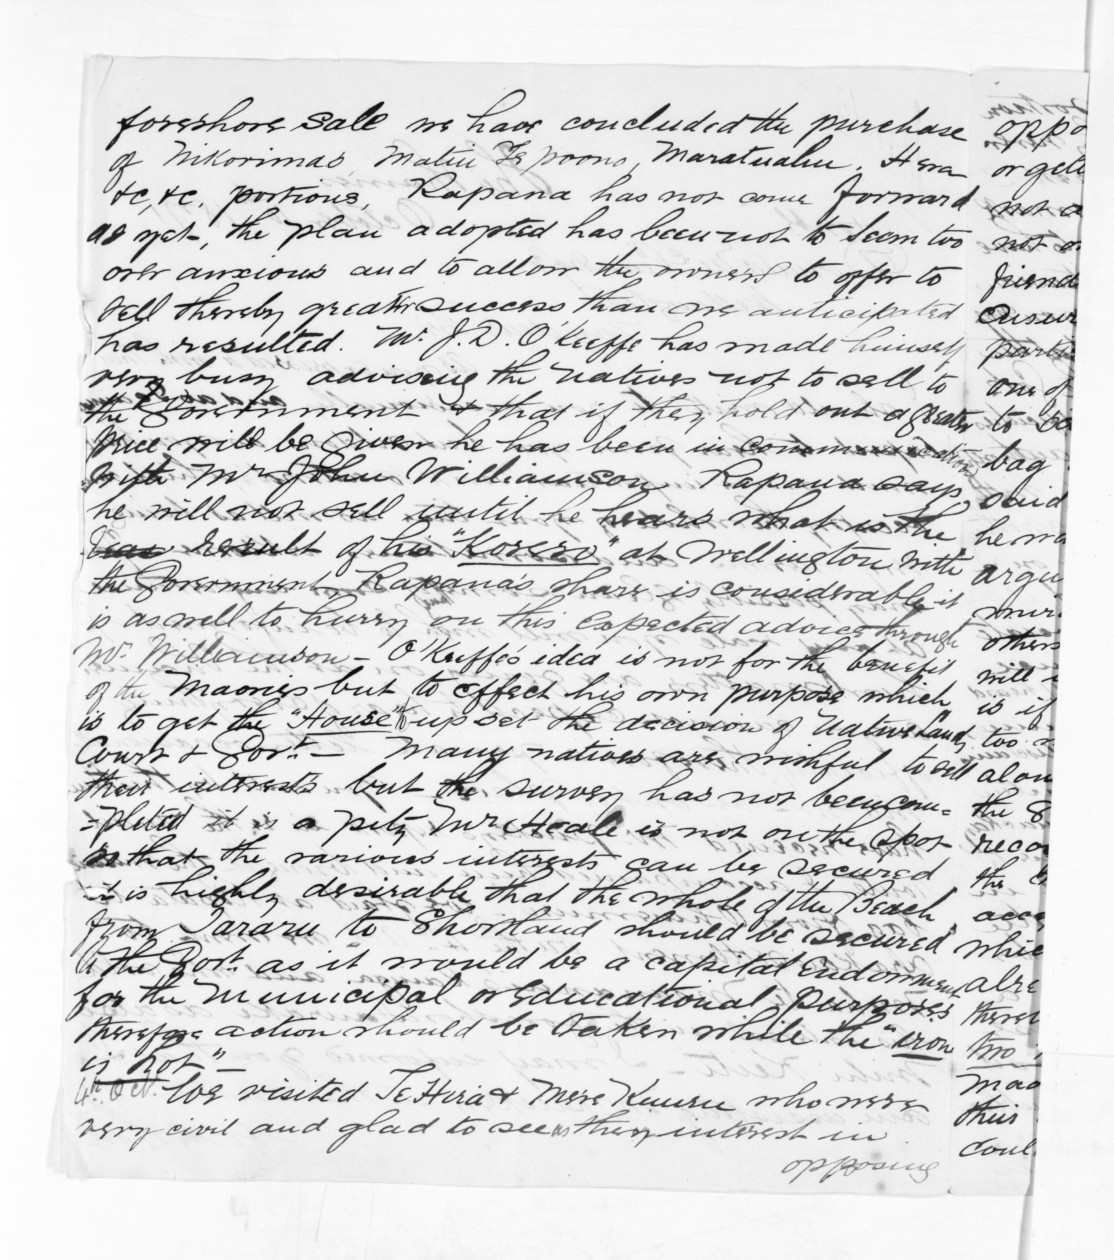 foreshore sale we have concluded the purchase
of Nikorimas, Matiu Te poono, Maratuahu, Hera
&c, &c. portions, Rapana has not come forward
as yet, the plan adopted has been not to seem too
over anxious and to allow the owners to offer to
sell thereby greater success than we anticipated
has resulted. Mr. J. D. O'Keeffe has made himself
very busy advising the natives not to sell to
the Government & that if they hold out a greater
price will be given he has been in communication
with Mr John Williamson Rapana says,
he will not sell until he hears what is the
result of his "Korero" at Wellington with
the Government, Rapana's share is considerable it
is as well to hurry on this expected advice through
Mr. Williamson - O'Keeffe's idea is not for the benefit
of the Maories but to effect his own purpose which
is to get the "House" to upset the decision of Native Land
Court & Govt. - Many natives are wishful to sell
their interests but the survey has not been com-
=pleted it is a pity Mr Heale is not on the spot
so that the various interests can be secured
it is highly desirable that the whole of the Beach
from Tararu to Shortland should be secured
to the Govt. as it would be a capital Endowment
for the Municipal or Educational purposes
therefore action should be taken while the "iron
is hot" -
4th. Oct. We visited Te Hira & Mere Kuuru who were
very civil and glad to see us they interest in
opposing
oppo
or get
not a
not o
friend
one of
bag
said
he wa
argu
others
will
is if
too
alon
the
reco
the
acce
which
alre
there
two
Mao
their
coul